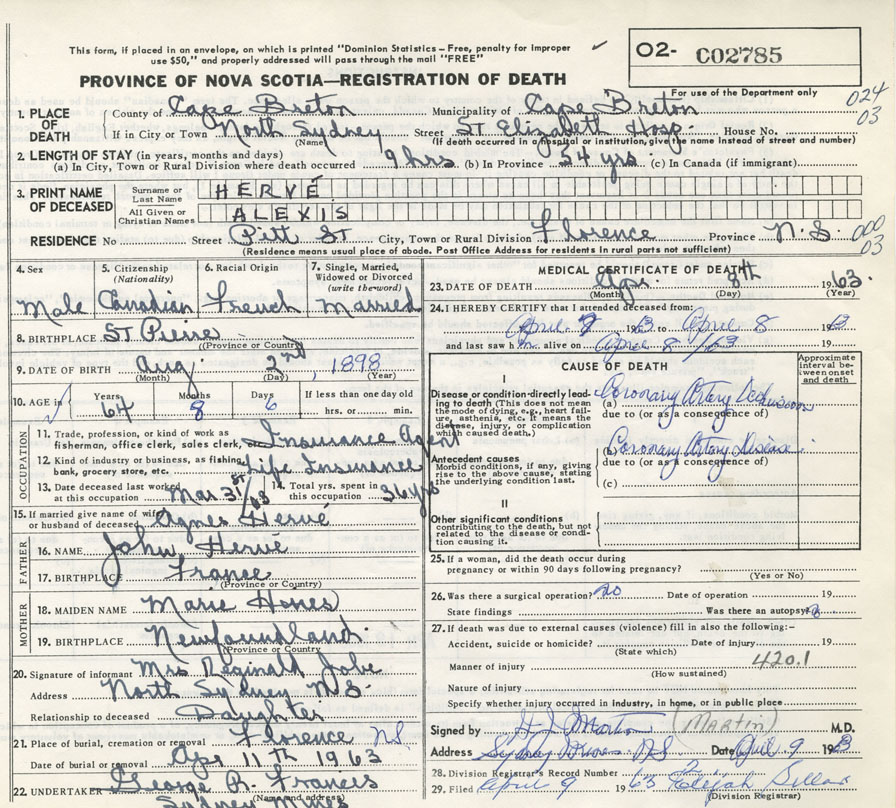 This form, if placed in an envelope, on which is printed "Dominion Statistics - Free, penalty for improper
use $50," and properly addressed will pass through the mail "FREE"
O2- C02785
PROVINCE OF NOVA SCOTIA—REGISTRATION OF DEATH
For use of the Department only
024
03
1. PLACE OF DEATH
County of Cape Breton Municipality of Cape Breton
If in City or Town North Sydney Street St Elizabeth Hosp. House No.
(Name) (If death occurred in a hospital or institution, give the name instead of street and number)
2. LENGTH OF STAY (in years, months and days)
(a) In City, Town or Rural Division where death occurred 9 hrs (b) In Province 54 yrs. (c) In Canada (if immigrant)
3. PRINT NAME OF DECEASED
Surname or Last Name HERVÉ
All Given or Christian Names ALEXIS
RESIDENCE No Street Pitt St City, Town or Rural Division Florence Province N.S. 000
03
(Residence means usual place of abode. Post Office Address for residents in rural parts not sufficient)
4. Sex 5. Citizenship (Nationality) 6. Racial Origin 7. Single, Married, Widowed or Divorced (write the word)
Male Canadian French Married
8. BIRTHPLACE St Pierre
(Province or Country)
9. DATE OF BIRTH Aug. 2nd, 1898
(Month) (Day) (Year)
10. AGE in Years Months Days If less than one day old
64 8 6 hrs. or min.
OCCUPATION
11. Trade, profession, or kind of work as fisherman, office clerk, sales clerk, Insurance Agent
12. Kind of industry or business, as fishing, bank, grocery store, etc. Life Insurance
13. Date deceased last worked at this occupation Mar 31st/63 14. Total yrs. spent in this occupation 36 yrs
15. If married give name of wife or husband of deceased Agnes Hervé
FATHER
16. NAME John Hervé
17. BIRTHPLACE France
(Province or Country)
MOTHER
18. MAIDEN NAME Marie
19. BIRTHPLACE Newfoundland.
(Province or Country
20. Signature of informant Mrs Reginald
Address North Sydney N.S.
Relationship to deceased Daughter
21. Place of burial, cremation or removal Florence NS
Date of burial or removal Apr 11th 1963
22. UNDERTAKER George R. Francis
(Name and address)
Sydney Mines
MEDICAL CERTIFICATE OF DEATH
23. DATE OF DEATH Apr. 8th 1963.
(Month) (Day) (Year)
24. I HEREBY CERTIFY that I attended deceased from:
April 7 1963 to April 8 1963
and last saw h im alive on April 8/63 19
CAUSE OF DEATH
Approximate interval between onset and death
I
Disease or condition directly leading to death (This does not mean the mode of dying, e.g., heart failure, asthenia, etc. It means the disease, injury, or complication which caused death.)
(a) Coronary Artery
due to (or as a consequence of)
Antecedent causes
Morbid conditions, if any, giving rise to the above cause, stating the underlying condition last.
(b) Coronary Artery Disease.
due to (or as a consequence of)
(c)
II
Other significant conditions
contributing to the death, but not related to the disease or condition causing it.
25. If a woman, did the death occur during
pregnancy or within 90 days following pregnancy?
(Yes or No)
26. Was there a surgical operation? no Date of operation 19
State findings Was there an autopsy?
27. If death was due to external causes (violence) fill in also the following:-
Accident, suicide or homicide? Date of injury 19
(State which)
Manner of injury 420.1
(How sustained)
Nature of injury
Specify whether injury occurred in industry, in home, or in public place
Signed by H J Martin (MARTIN) M.D.
Address Sydney Mines NS Date April 9 1963
28. Division Registrar's Record Number
29. Filed April 9 1963
(Division Registrar)